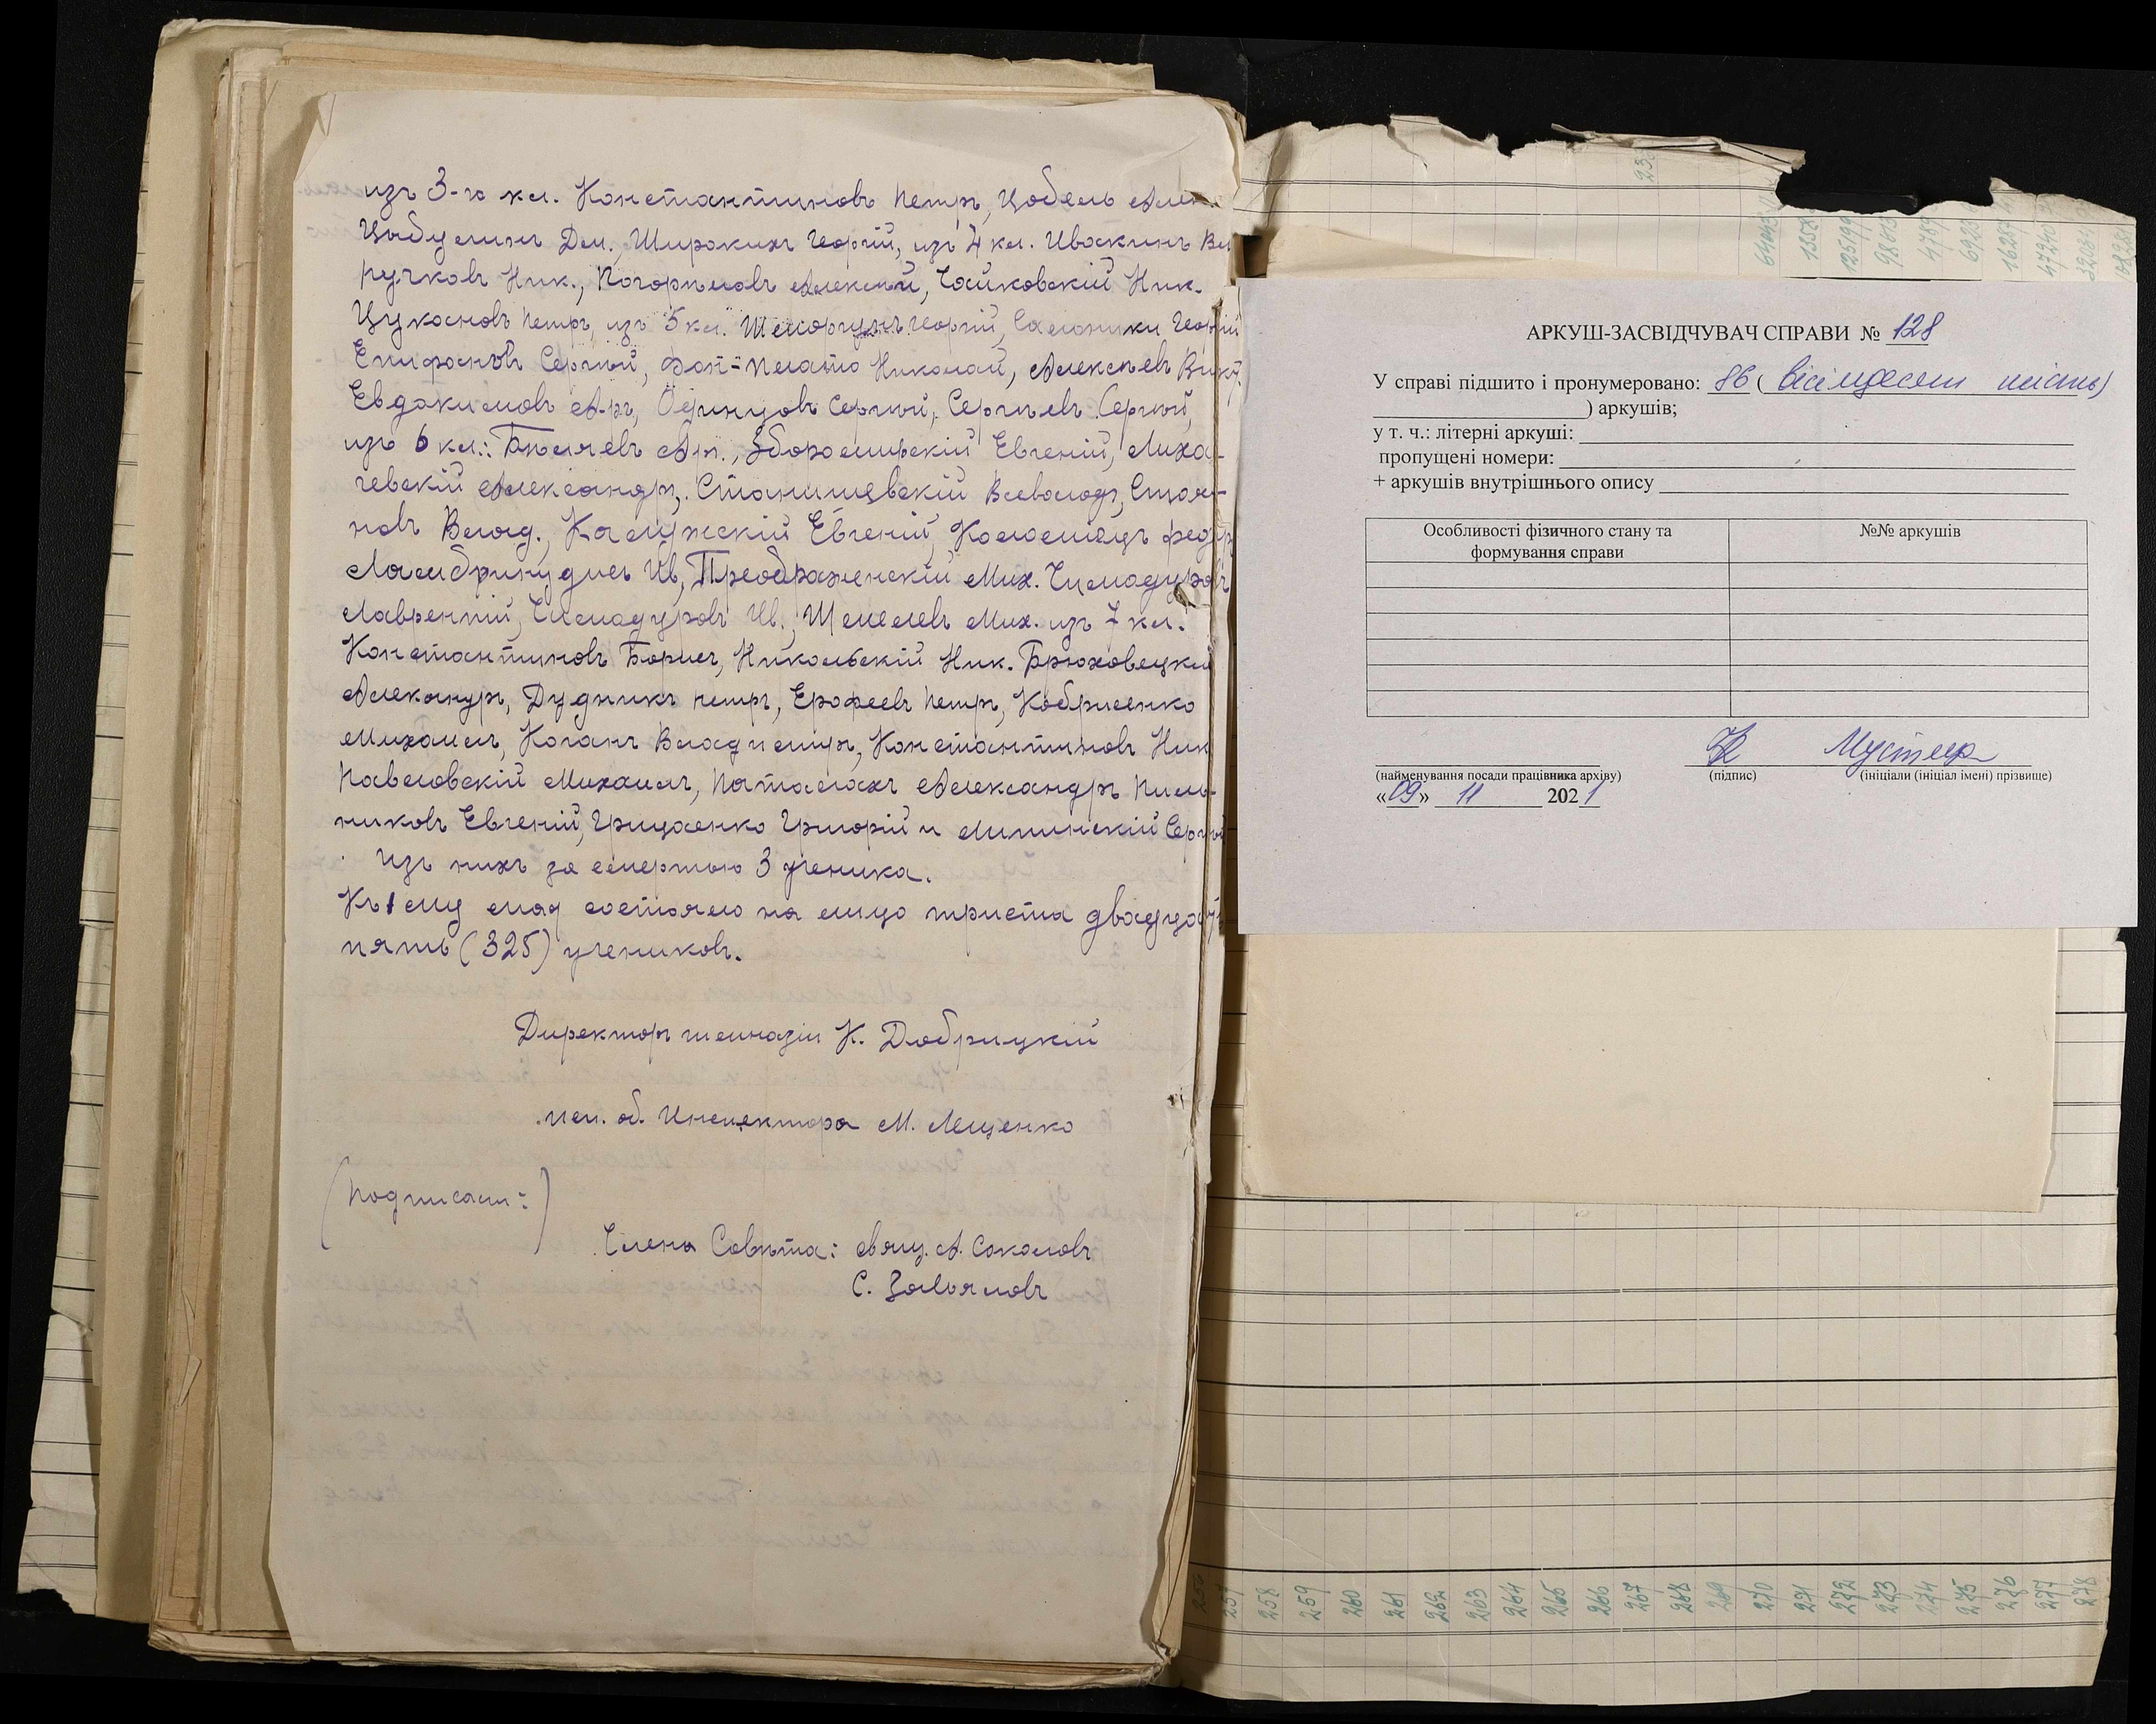 изъ 3-го кл. Константиновъ Петръ, Цобель
Цыбулинъ Дем., Широкихъ Георгій, изъ 4 кл. Ивоскинъ
ручковъ Ник., Погорѣловъ Алексѣй, Чайковскій Ник.
Цукановъ Петръ, изъ 5 кл. Георгій, Георгій
Епифановъ Сергѣй, Фон-Плато Николай, Алексѣевъ Викт.
Евдокимовъ Ар., Одинцовъ Сергѣй, Сергѣевъ Сергѣй,
изъ 6 кл.: Бѣляевъ Ар., Зборомирскій Евгеній, Лиха-
чевскій Александръ, Станишевскій Всеволодъ, Стоя-
новъ Влад., Калужскій Евгеній, Коломіецъ Федоръ
Ламбринудисъ Ив., Преображенскій Мих. Чимадуровъ
Лаврентій, Чимадуровъ Ив., Шемелевъ Мих. изъ 7 кл.
Константиновъ Борисъ, Никольскій Ник. Брюховецкій
Александръ, Дудникъ Петръ, Ерофеевъ Петръ, Кобрисенко
Михаилъ, Коганъ Владиміръ, Константиновъ Ник
Павловскій Михаилъ, Паталахъ Александръ Пиль-
никовъ Евгеній, Грицаенко Григорій и Липинскій Сергѣй
Изъ нихъ за смертью 3 ученика.
Къ 1 му мая состояло на лицо триста двадцать
пять (325) учениковъ.
Директоръ гимназіи К. Добрицкій
исп. об. Инспектора М. Лещенко
(подписали:)
Члены Совѣта: свящ. А. Соколовъ
С. Завьяловъ
АРКУШ-ЗАСВІДЧУВАЧ СПРАВИ № 128
У справі підшито і пронумеровано: 86 ( вісімдесят шість)
) аркушів;
у т. ч.: літерні аркуші:
пропущені номери:
+ аркушів внутрішнього опису
Особливості фізичного стану та формування справи
№№ аркушів
(найменування посади працівника архіву) (підпис) (ініціали (ініціал імені) прізвище)
«09» 11 2021
258 259 260 261 262 263 264 265 266 267 268 269 270 271 272 273 274 275 276 277 278